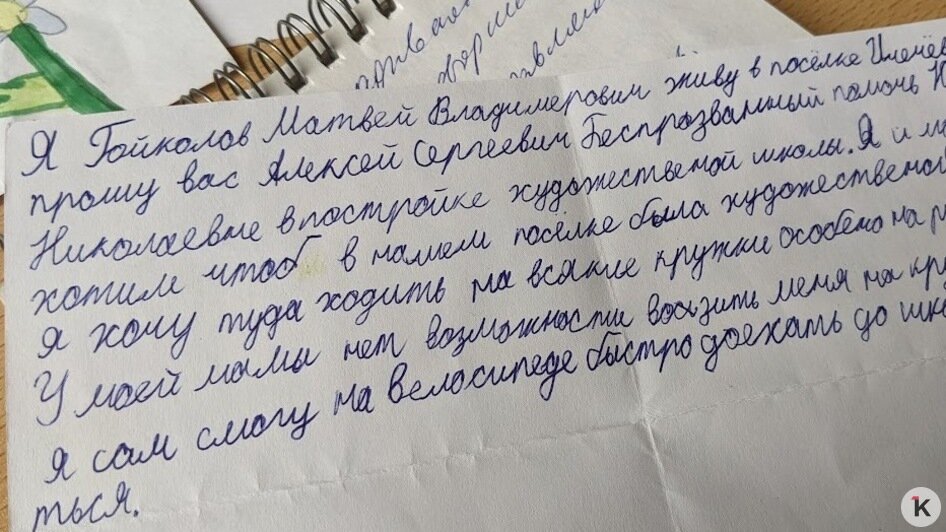 Я Гойколов Матвей Владимерович живу в посёлке
прошу вас Алексей Сергеевич Беспрозванный помочь Н
Николаевне в постройке художественой школы. Я и м
хотим чтоб в нашем посёлке была художественой
Я хочу туда ходить на всякие кружки особено на р
У моей мамы нет возможности возить меня на кр
Я сам смогу на велосипеде быстро доехать до шко
ться.